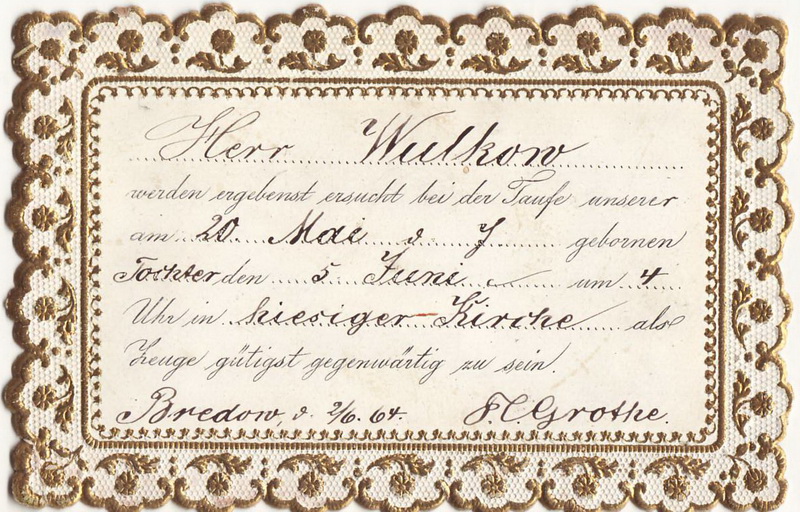 Herr Wulkow
werden ergebenst ersucht bei der Taufe unserer
am 20 Mai d. J. gebornen
Tochter den 5 Juni um 4
Uhr in hiesiger Kirche als
Zeuge gütigst gegenwärtig zu sein.
Bredow, d. 2/6. 64. F. C. Grothe.